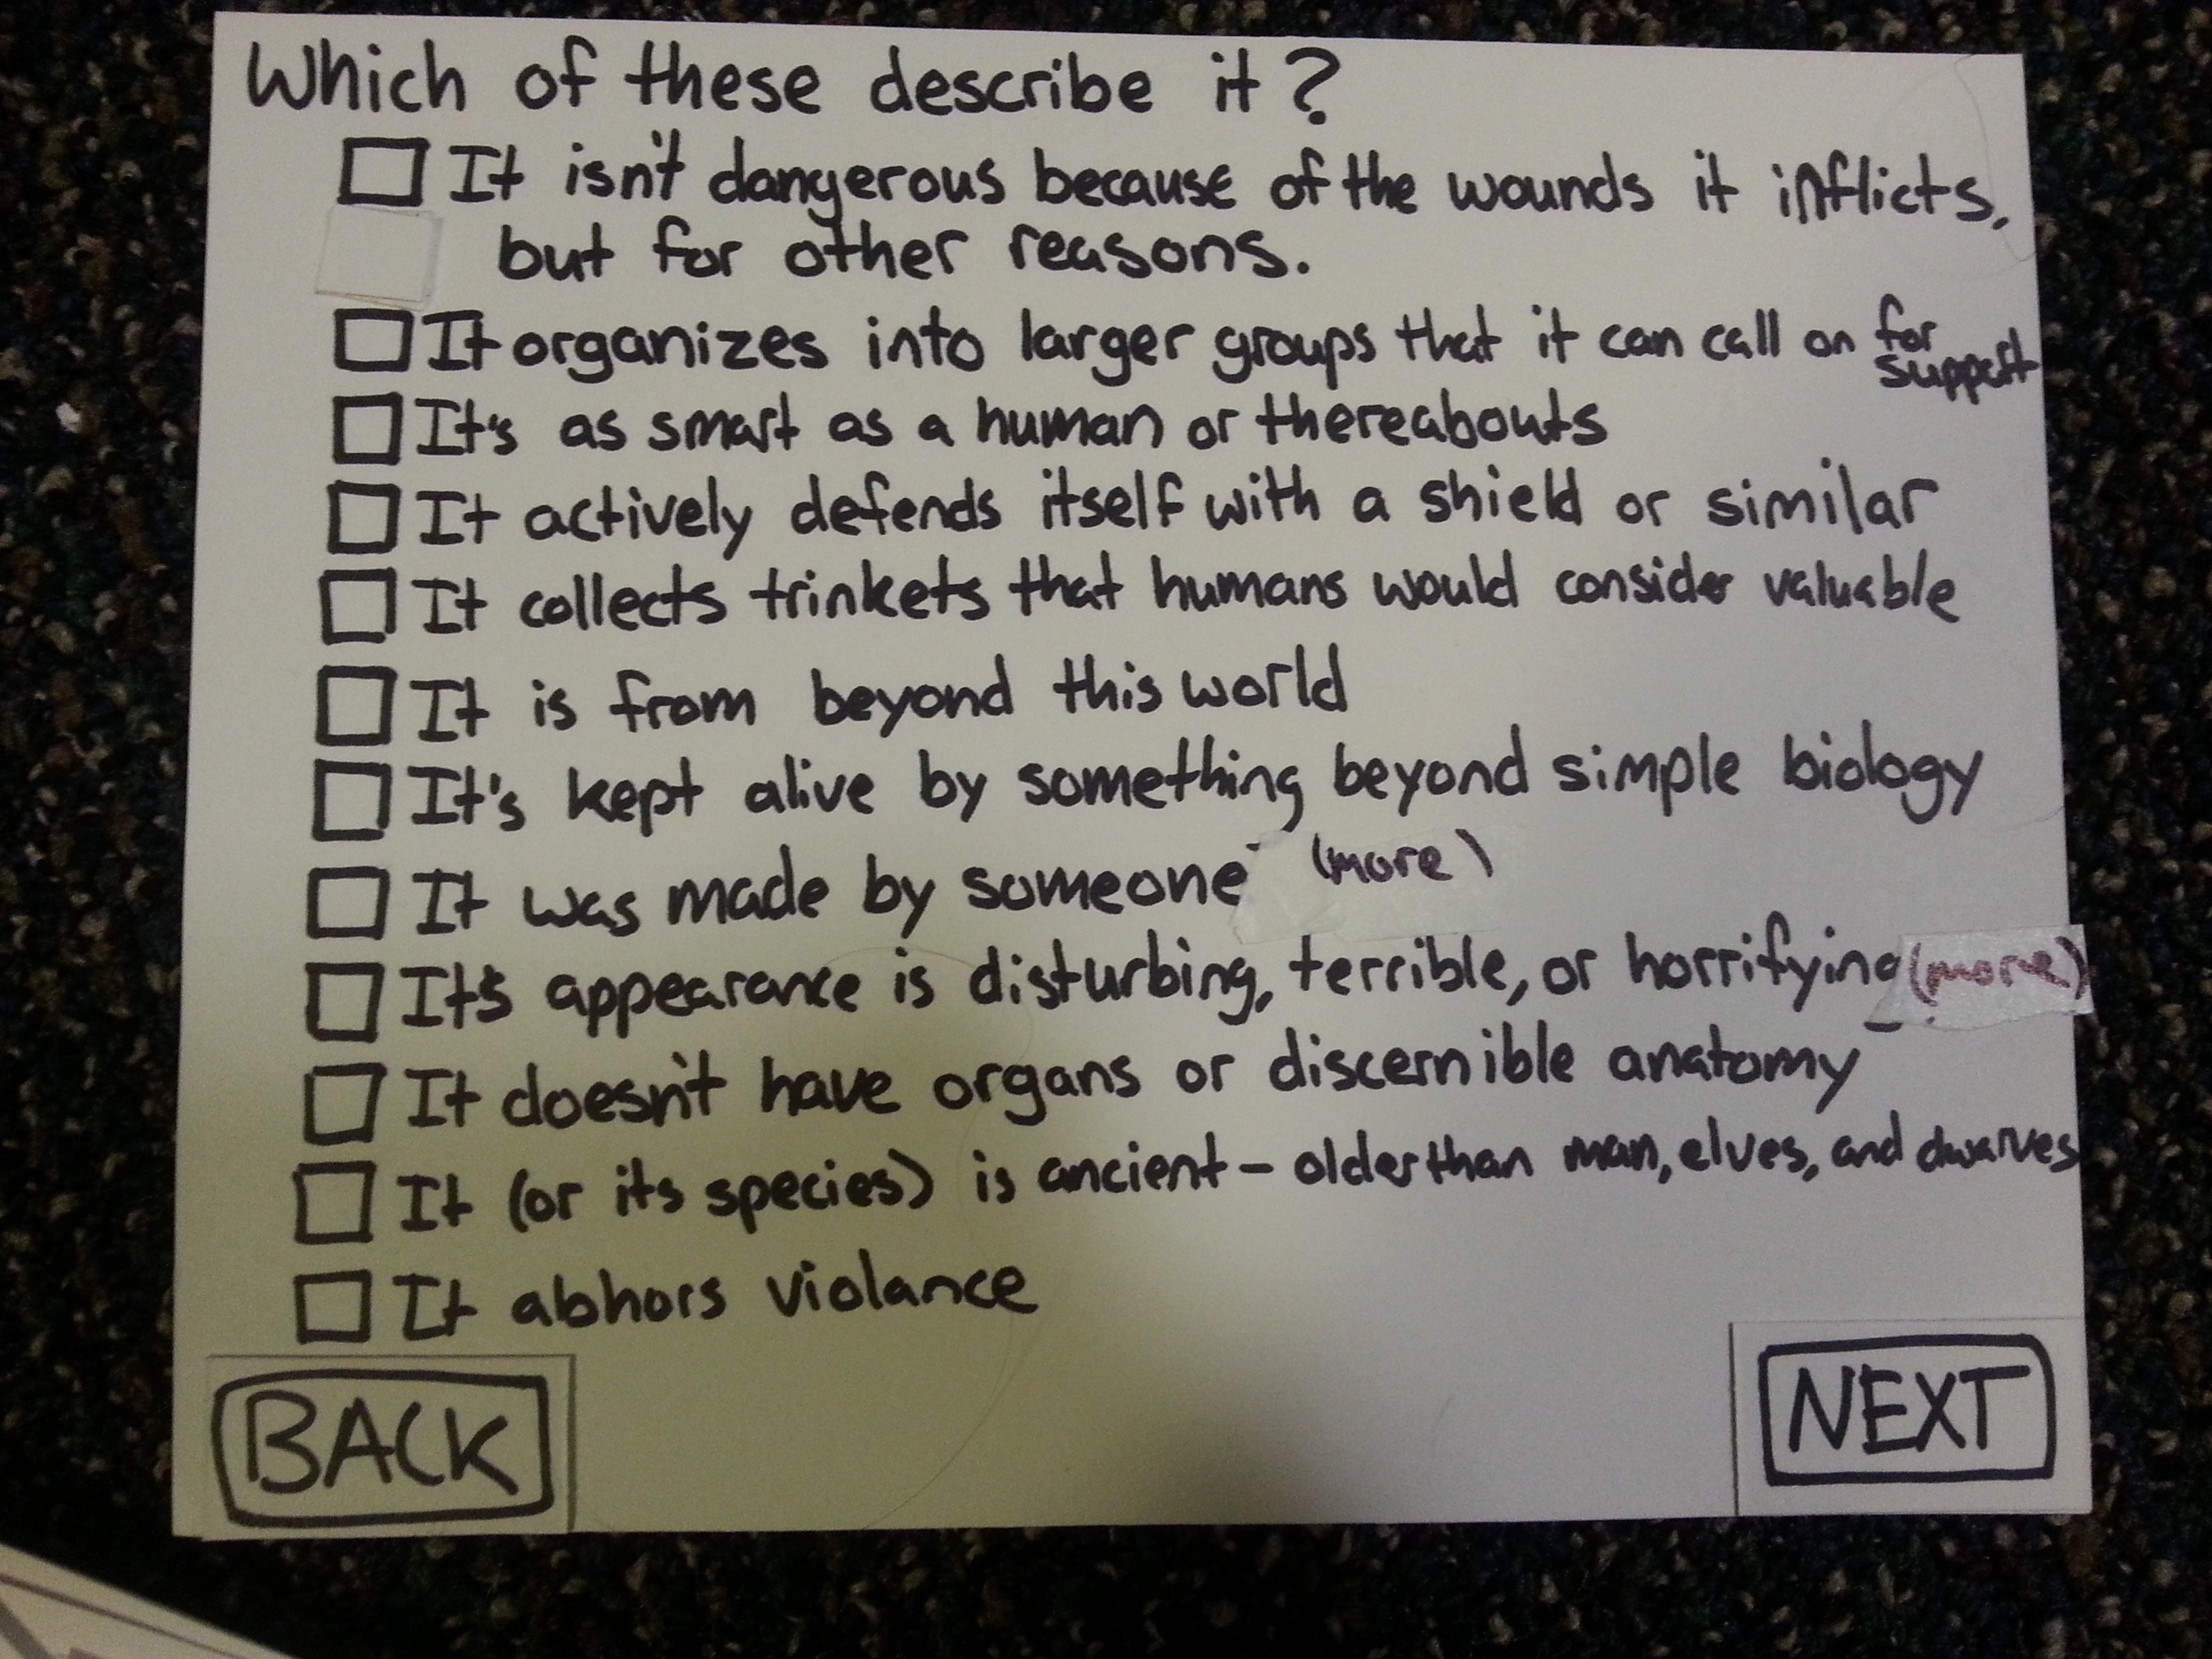 Which of these describe it?
It isn't dangerous because of the wounds it inflicts,
but for other reasons.
It organizes into larger groups that it can call on for
support
It's as smart as a human or thereabouts
It actively defends itself with a shield or similar
It collects trinkets that humans would consider valuable
It is from beyond this world
It's kept alive by something beyond simple biology
It was made by someone (more)
It's appearance is disturbing, terrible, or horrifying (more)
It doesn't have organs or discernible anatomy
It (or its species) is ancient - older than man, elves, and dwarves
It abhors violance
BACK
NEXT